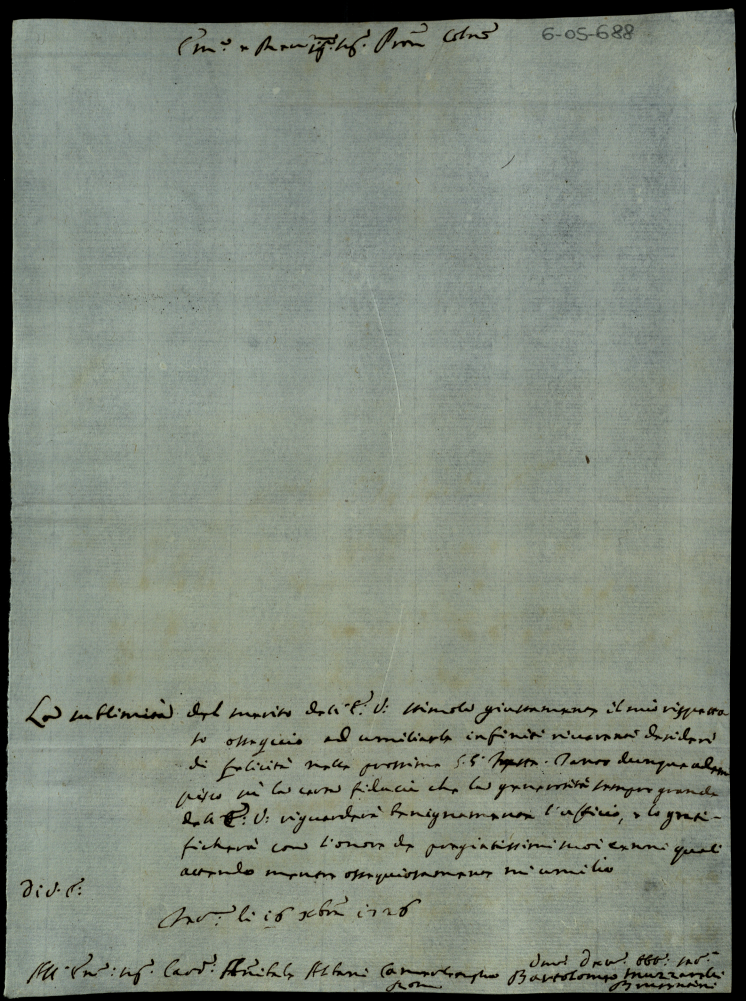 Em.º e Rev.º Sig. Sig. Pron Colmo
6-05-688
La sublimità del merito dell'E: V: stimola giustamente il mio rispetto
so ossequio ad umiliarle infiniti riverenti desideri
di felicità nelle prossime S.S. Feste. Tanto dunque adem
pisco su la certa fiducia che la generosità sempre grande
dell'E: V: riguarderà benignamente l'ufficio, e lo grati-
ficherà con l'onore de pregiatissimi suoi cenni quali
attendo mentre ossequiosamente mi umilio
Di V. E:
li 16 Xbre 1726
All' Em.º Sig. Card. Annibale Albani Camerlengho
Roma
Dev. Obb. Ser.
Bartolomeo Muzzarelli
Brunoini